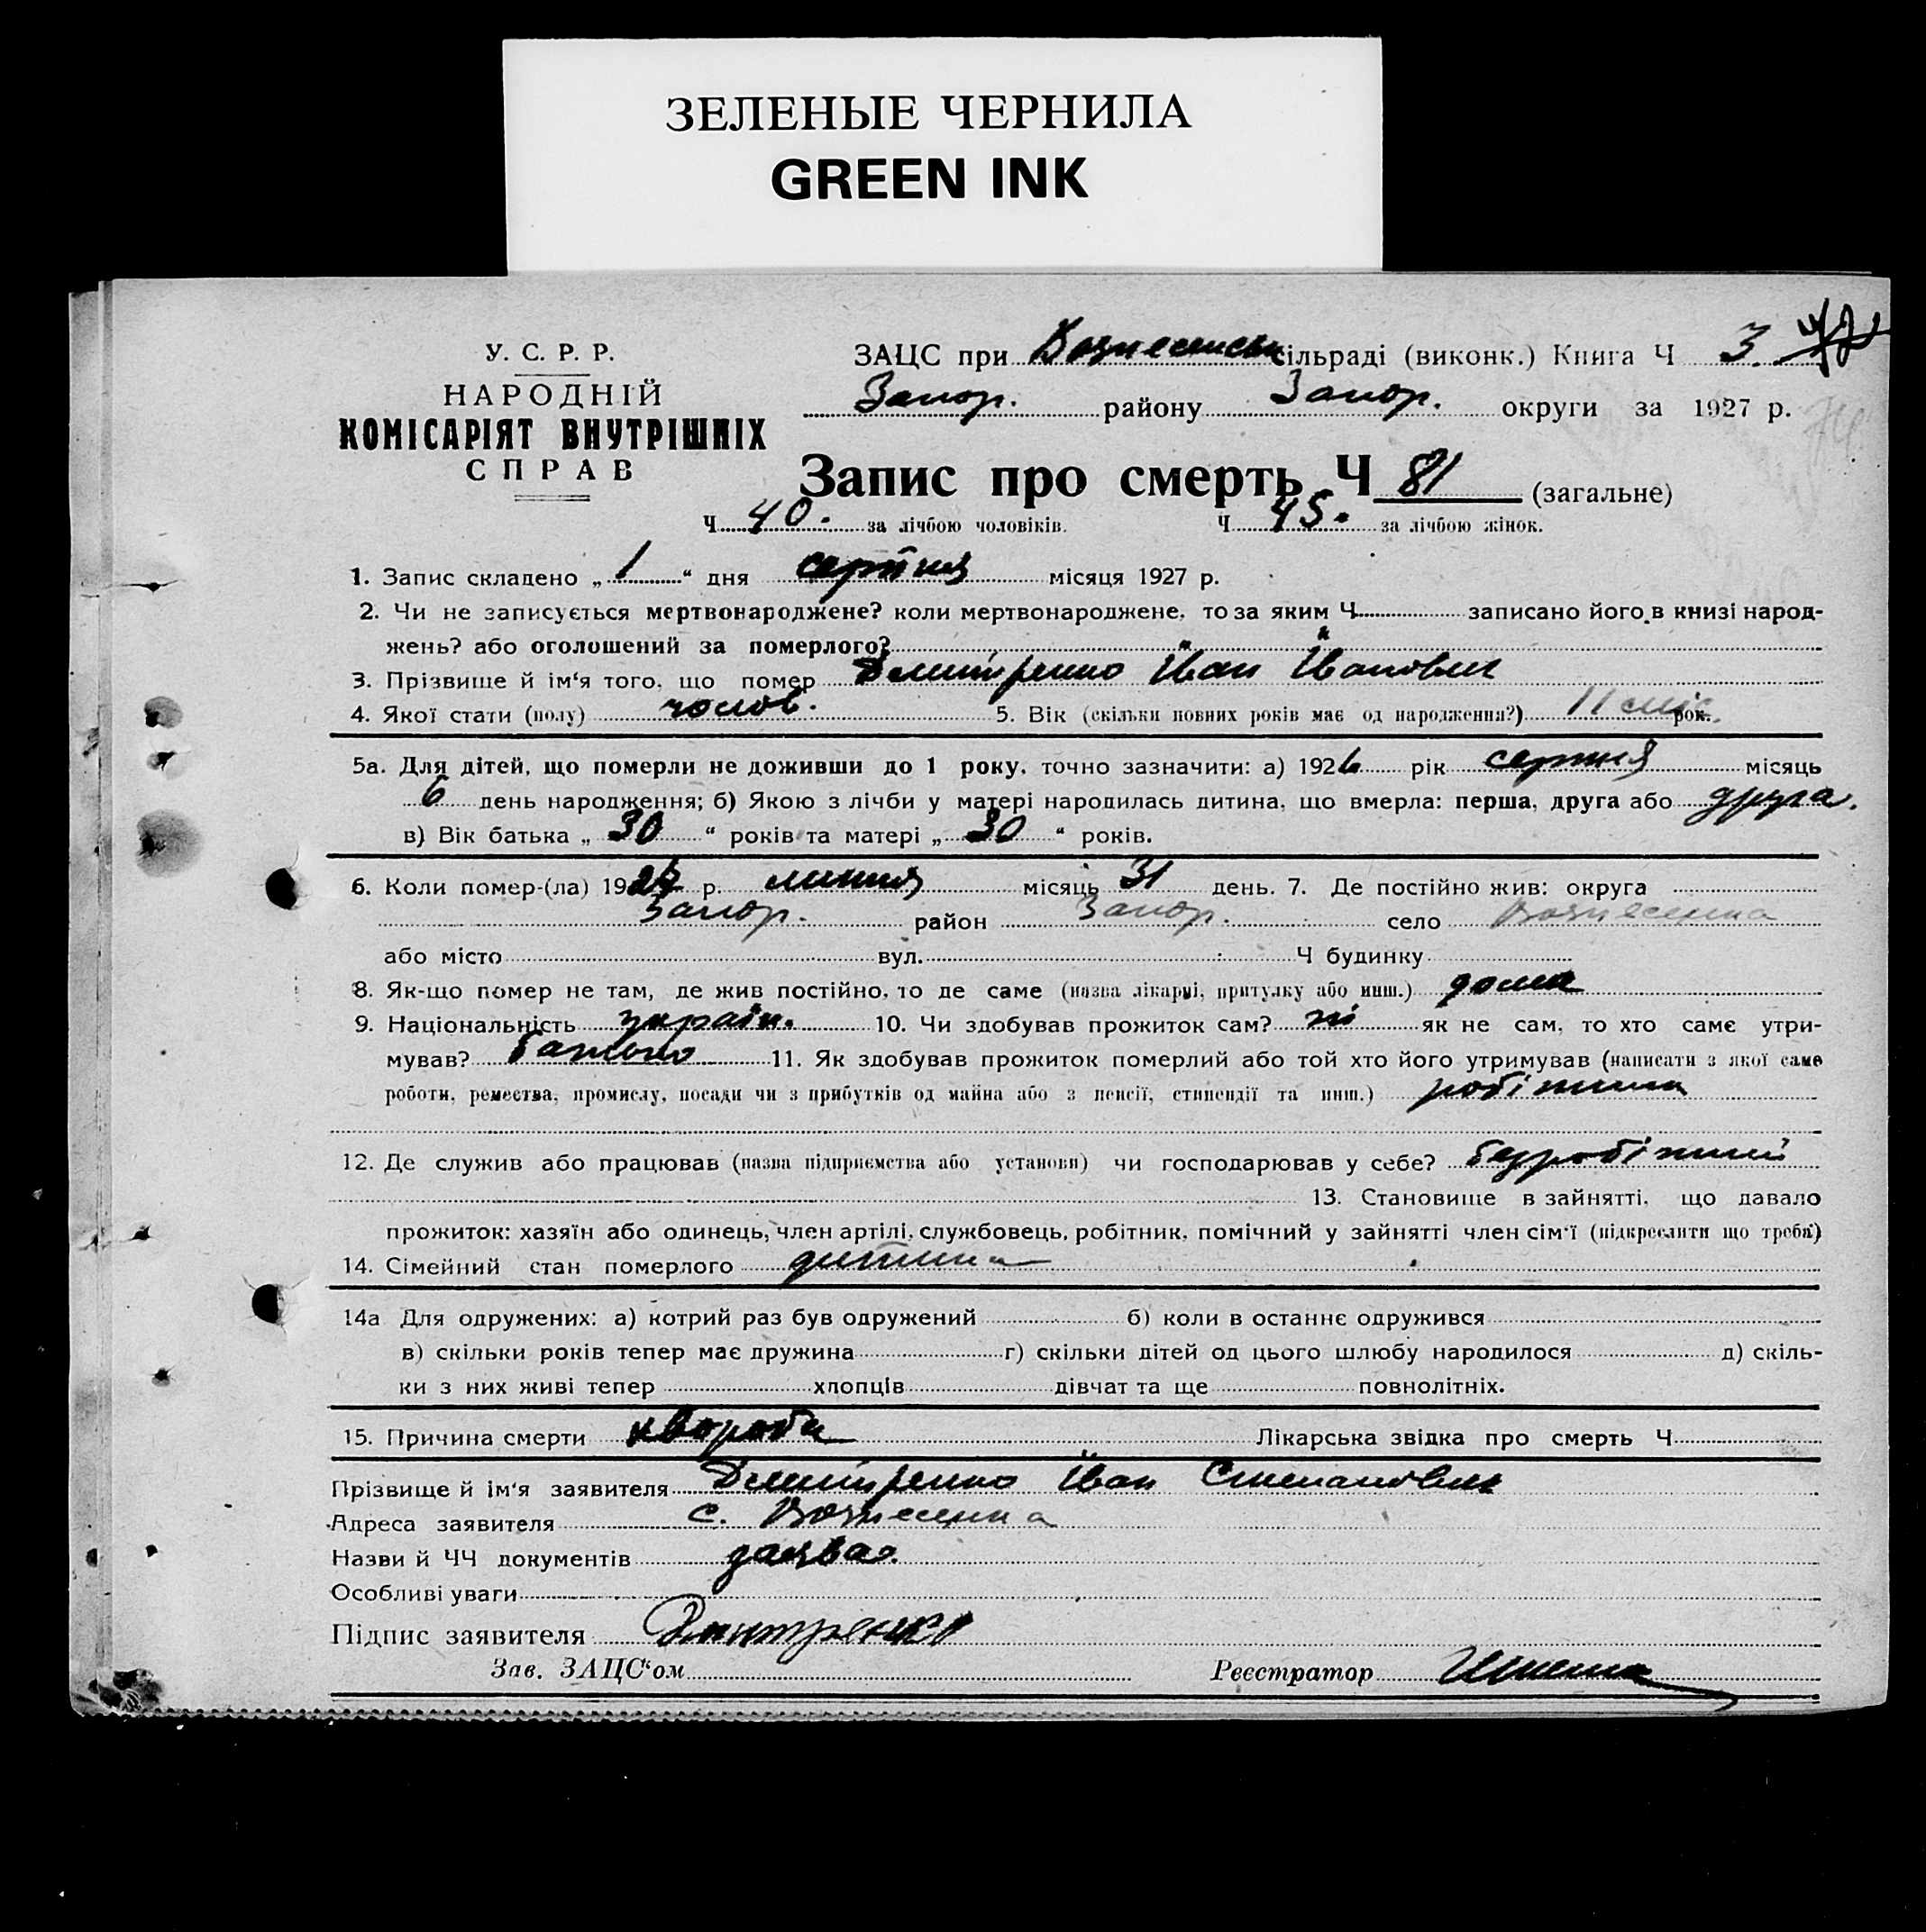 ЗЕЛЕНЫЕ ЧЕРНИЛА
GREEN INK
У. С. Р. Р.
НАРОДНІЙ
КОМІСАРІЯТ ВНУТРІШНІХ
СПРАВ
ЗАЦС при Вознесенськ сільраді (виконк.) Книга Ч 3.
Запор. району Запор. округи за 1927 р.
Запис про смерть Ч 81 (загальне)
Ч 40. за лічбою чоловіків. Ч 45. за лічбою жінок.
1. Запис складено „1“ дня серпня місяця 1927 р.
2. Чи не записується мертвонароджене? коли мертвонароджене, то за яким Ч записано його в книзі народ-
жень? або оголошений за померлого?
3. Прізвище й ім‘я того, що помер Демитренко Іван Іванович
4. Якої стати (полу) чолов. 5. Вік (скільки повних років має од народження?) 11 міс. рок.
5а. Для дітей, що померли не доживши до 1 року, точно зазначити: а) 1926 рік серпня місяць
6 день народження; б) Якою з лічби у матері народилась дитина, що вмерла: перша, друга або друга.
в) Вік батька „30“ років та матері „30“ років.
6. Коли помер-(ла) 1927 р. липня місяць 31 день. 7. Де постійно жив: округа
Запор. район Запор. село Вознесенка
або місто вул. Ч будинку
8. Як-що помер не там, де жив постійно, то де саме (назва лікарні, притулку або инш.) дома
9. Національність україн. 10. Чи здобував прожиток сам? ні як не сам, то хто саме утри-
мував? батько 11. Як здобував прожиток померлий або той хто його утримував (написати з якої саме
роботи, ремества, промислу, посади чи з прибутків од майна або з пенсії, стипендії та инш.) робітник
12. Де служив або працював (назва підприємства або установи) чи господарював у себе? безробітний
13. Становище в зайнятті, що давало
прожиток: хазяїн або одинець, член артілі, службовець, робітник, помічний у зайнятті член сім‘ї (підкреслити що треба)
14. Сімейний стан померлого дитина
14а Для одружених: а) котрий раз був одружений б) коли в останнє одружився
в) скільки років тепер має дружина г) скільки дітей од цього шлюбу народилося д) скіль-
ки з них живі тепер хлопців дівчат та ще повнолітніх.
15. Причина смерти хвороба Лікарська звідка про смерть Ч
Прізвище й ім‘я заявителя Демитренко Іван Степанович
Адреса заявителя с. Вознесенка
Назви й ЧЧ документів заява.
Особливі уваги
Підпис заявителя Дмитренко
Зав. ЗАЦС‘ом Реєстратор